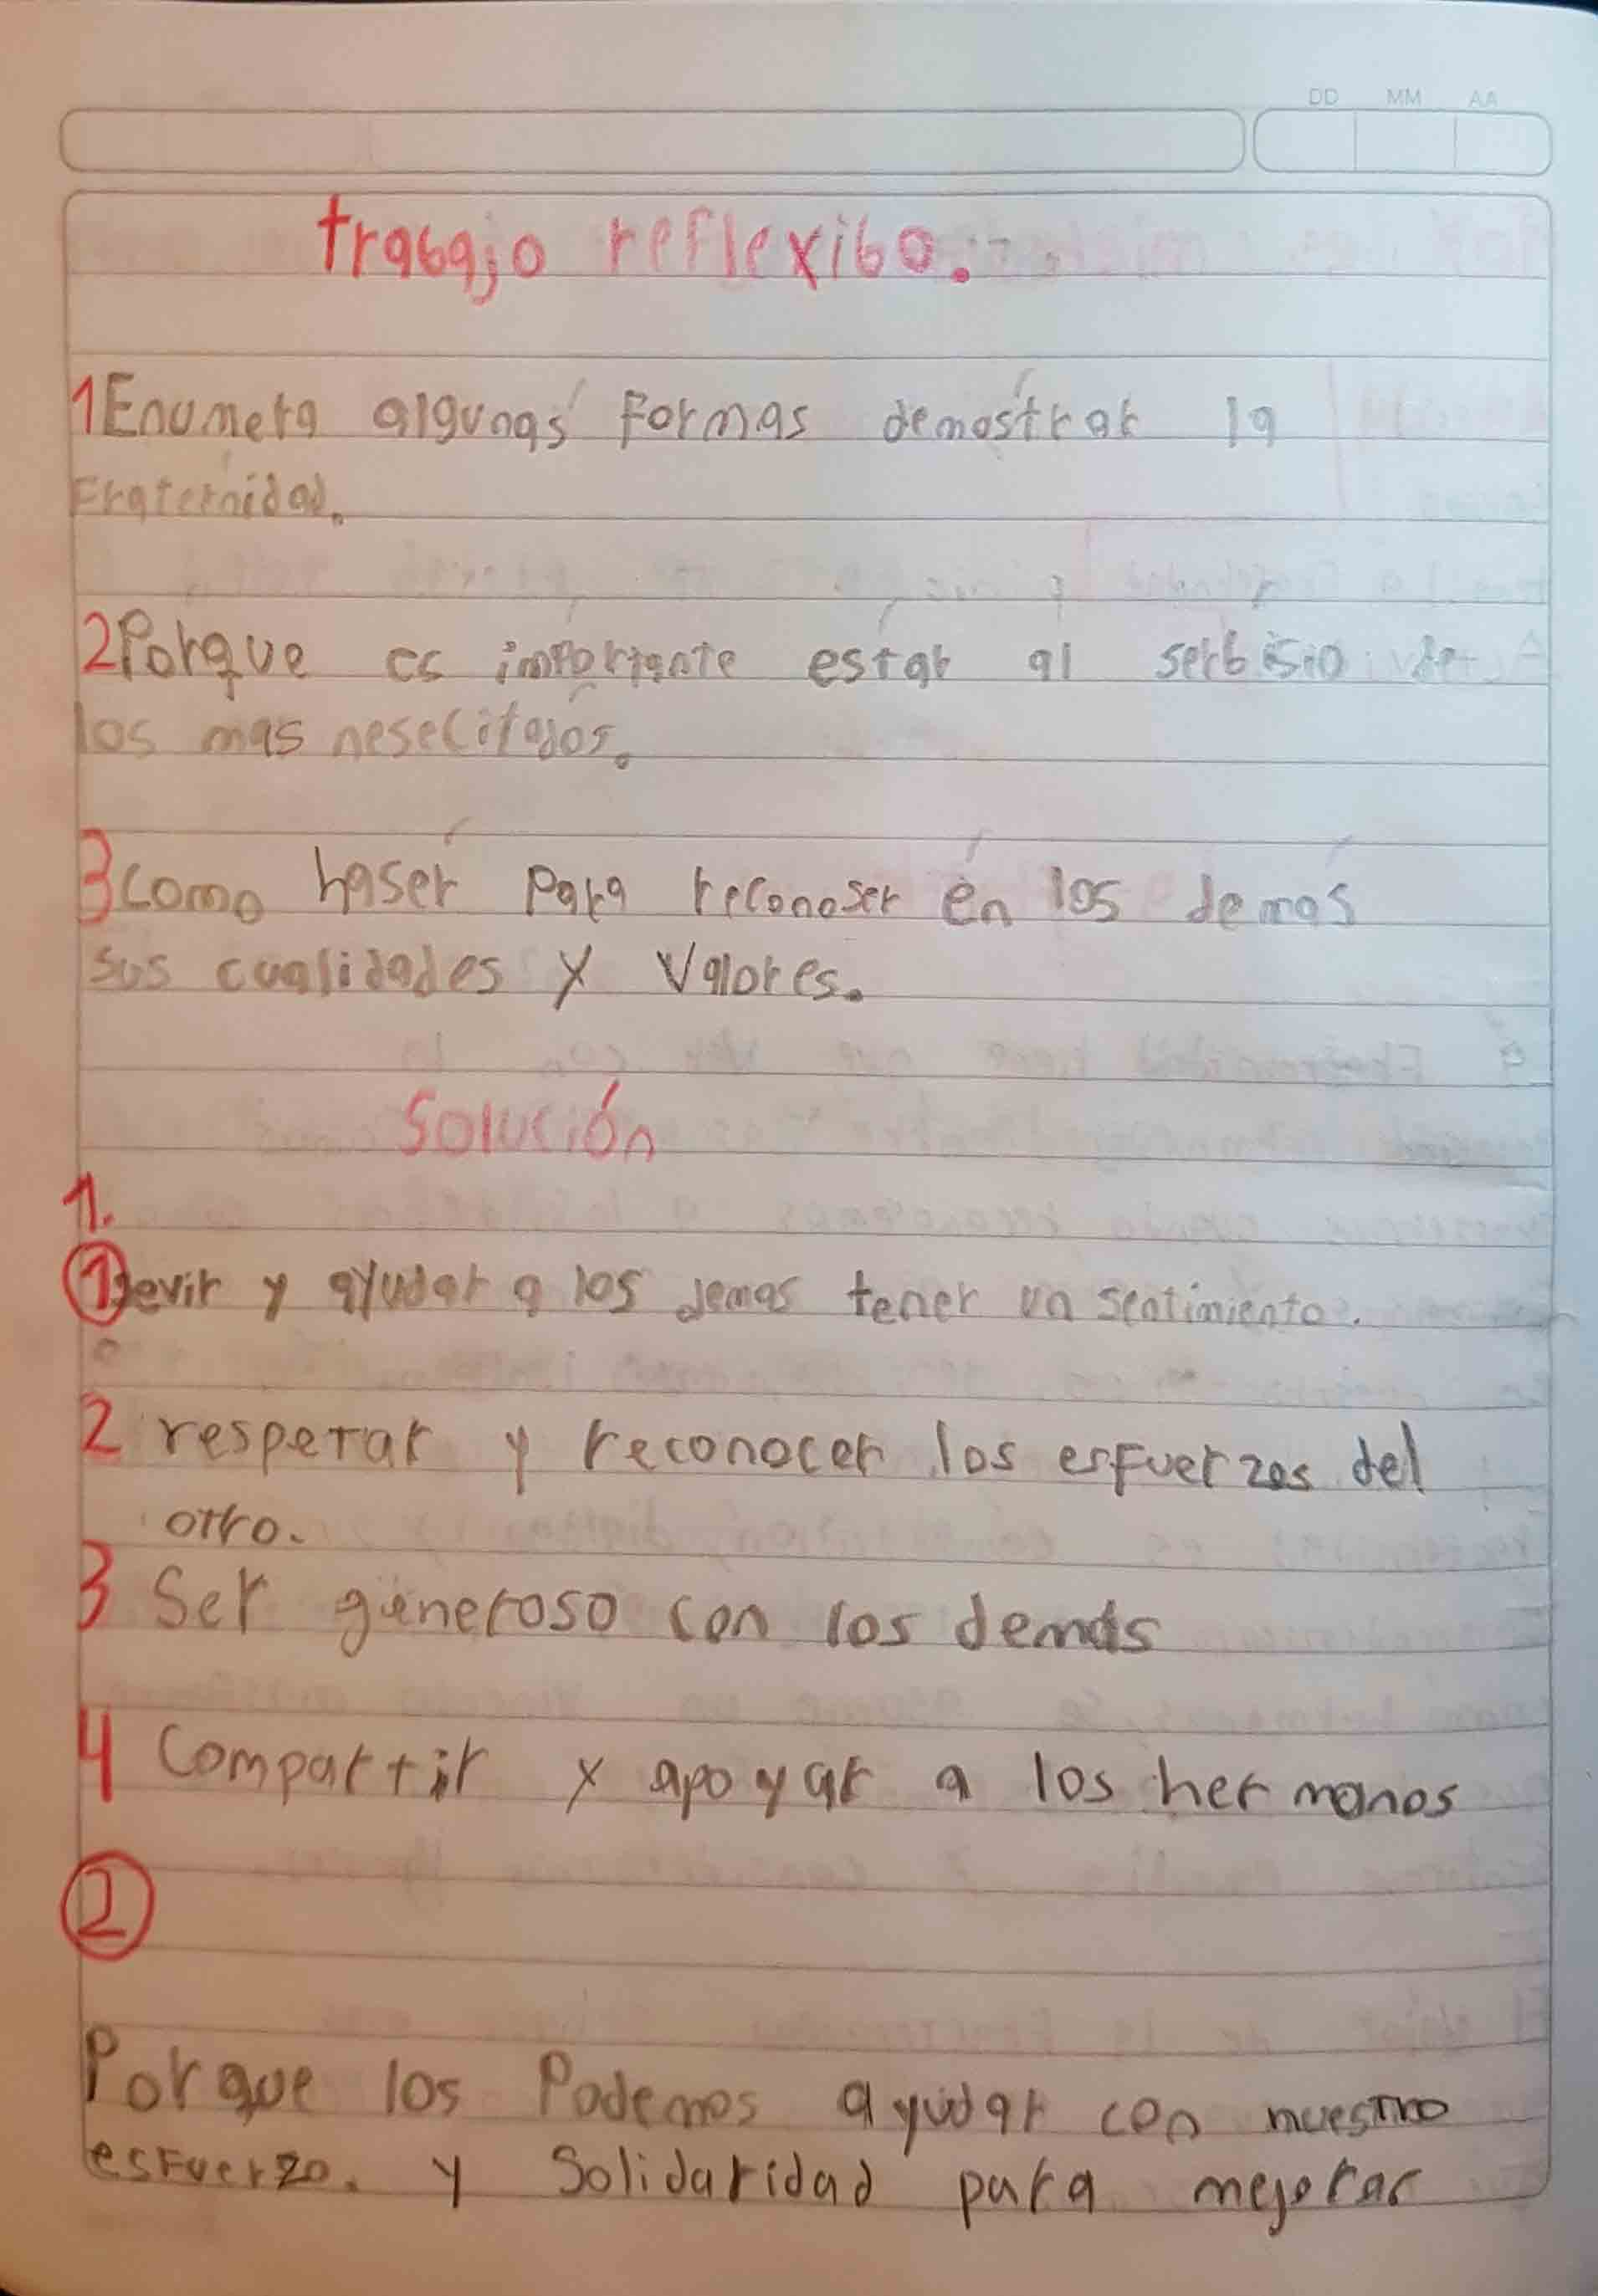 DD MM AA
trabajo reflexibo.
1 Enumera algunas formas demostrar la
Fraternidad.
2 Porque es importante estar al serbisio de
los mas nesecitados.
3 como haser para reconoser en los demas
sus cualidades y valores.
Solución
1.
1 y ayudar a los demas tener un sentimiento.
2 respetar y reconocer los esfuerzos del
otro.
3 Ser generoso con los demás
4 Compartir y apoyar a los hermanos
2
Porque los Podemos ayudar con nuestro
esfuerzo. y Solidaridad para mejorar